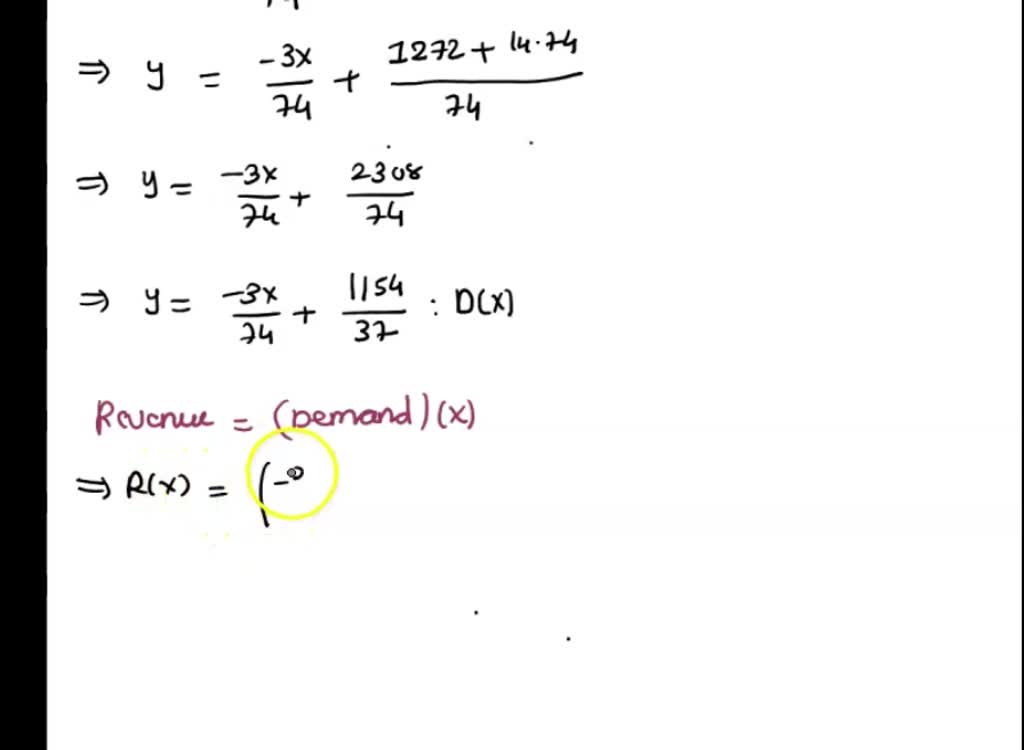 ⇒ y = -3x/74 + (1272 + 14.74)/74
⇒ y = -3x/74 + 2308/74
⇒ y = -3x/74 + 1154/37 : D(x)
Revenue = (Demand)(x)
⇒ R(x) = (-